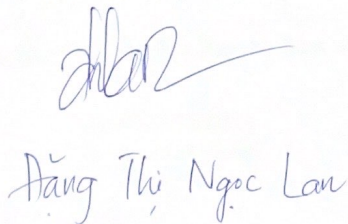 Đặng Thị Ngọc Lan